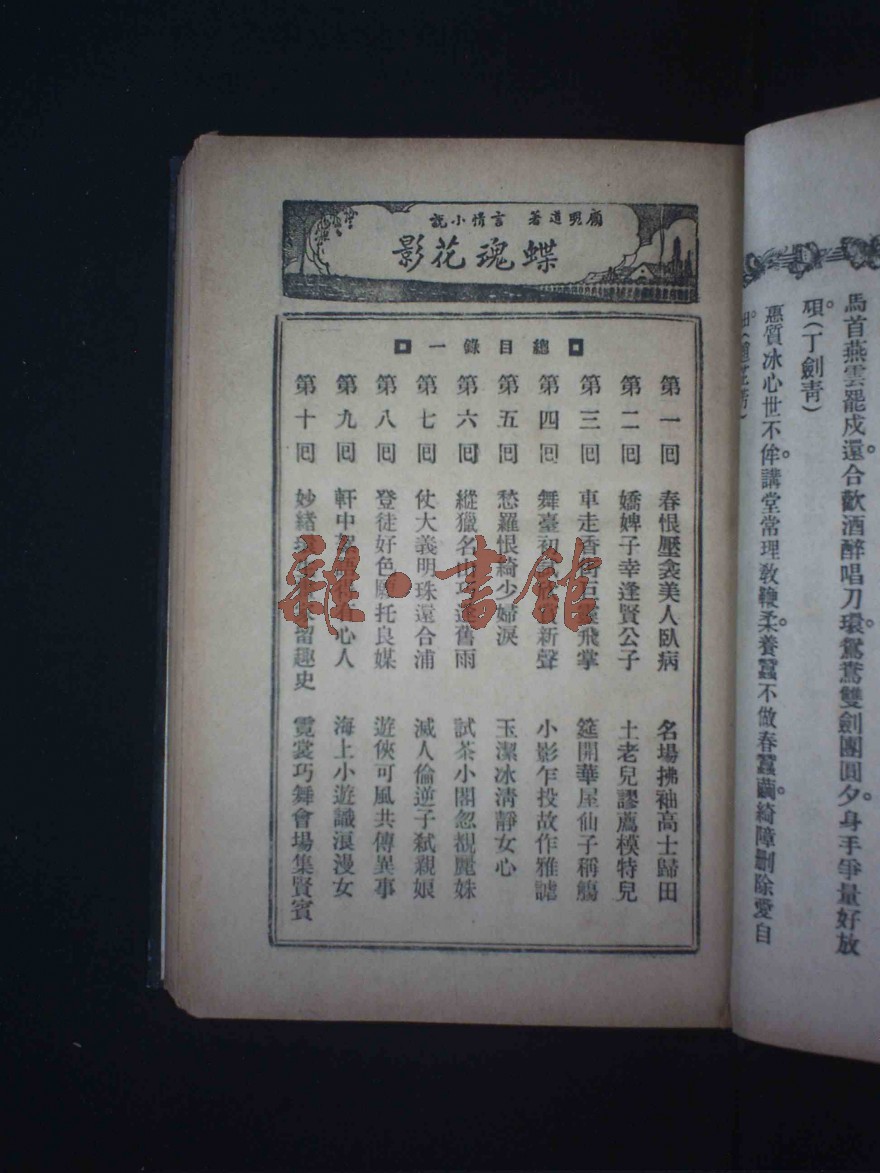 馬首燕雲罷戍還合歡酒醉唱刀環鴛鴦雙劍團圓夕身手爭量好放
頑(丁劍青)
惠質冰心世不侔講堂常理教鞭柔養蠶不做春蠶繭綺障刪除愛自
顧明道著 言情小說
蝶魂花影
總目錄一
第一回 春恨壓衾美人臥病 名場拂袖高士歸田
第二回 嬌婢子幸逢賢公子 土老兒謬薦模特兒
第三回 車走香街石飛掌 筵開華屋仙子稱觴
第四回 舞臺初新聲 小影乍投故作雅謔
第五回 愁羅恨綺少婦淚 玉潔冰清靜女心
第六回 縱獵名山巧舊雨 試茶小閣忽覩麗姝
第七回 仗大義明珠還合浦 滅人倫逆子弒親娘
第八回 登徒好色願托良媒 遊俠可風共傳異事
第九回 軒中心人 海上小遊識浪漫女
第十回 妙緒留趣史 霓裳巧舞會場集賢賓
雜·書館